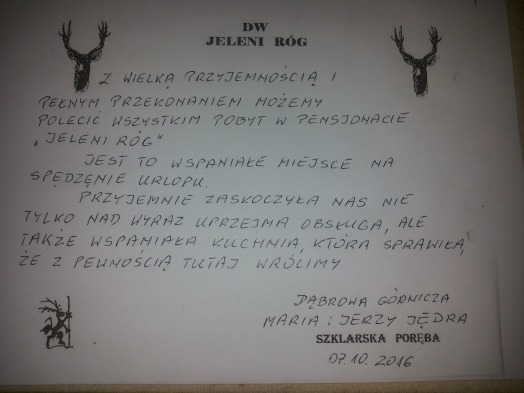 DW
JELENI RÓG
Z WIELKĄ PRZYJEMNOŚCIĄ I
PEŁNYM PRZEKONANIEM MOŻEMY
POLECIĆ WSZYSTKIM POBYT W PENSJONACIE
„JELENI RÓG"
JEST TO WSPANIAŁE MIEJSCE NA
SPĘDZĘNIE URLOPU.
PRZYJEMNIE ZASKOCZYŁA NAS NIE
TYLKO NAD WYRAZ UPRZEJMA OBSŁUGA, ALE
TAKŻE WSPANIAŁA KUCHNIA, KTÓRA SPRAWIŁA,
ŻE Z PEWNOŚCIĄ TUTAJ WRÓCIMY
DĄBROWA GÓRNICZA
MARIA i JERZY JĘDRA
SZKLARSKA PORĘBA
07.10.2016